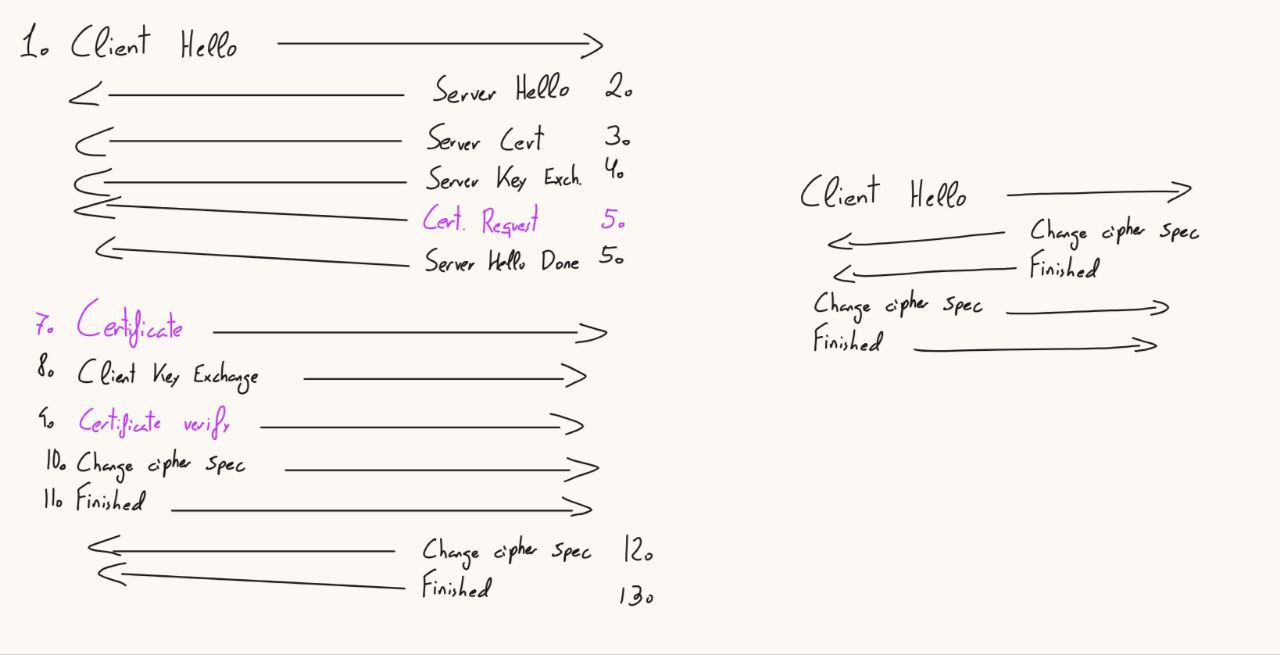 1. Client Hello
Server Hello 2.
Server Cert 3.
Server Key Exch. 4.
Cert. Request 5.
Server Hello Done 5.
7. Certificate
8. Client Key Exchange
9. Certificate verify
10. Change cipher spec
11. Finished
Change cipher spec 12.
Finished 13.
Client Hello
Change cipher spec
Finished
Change cipher spec
Finished